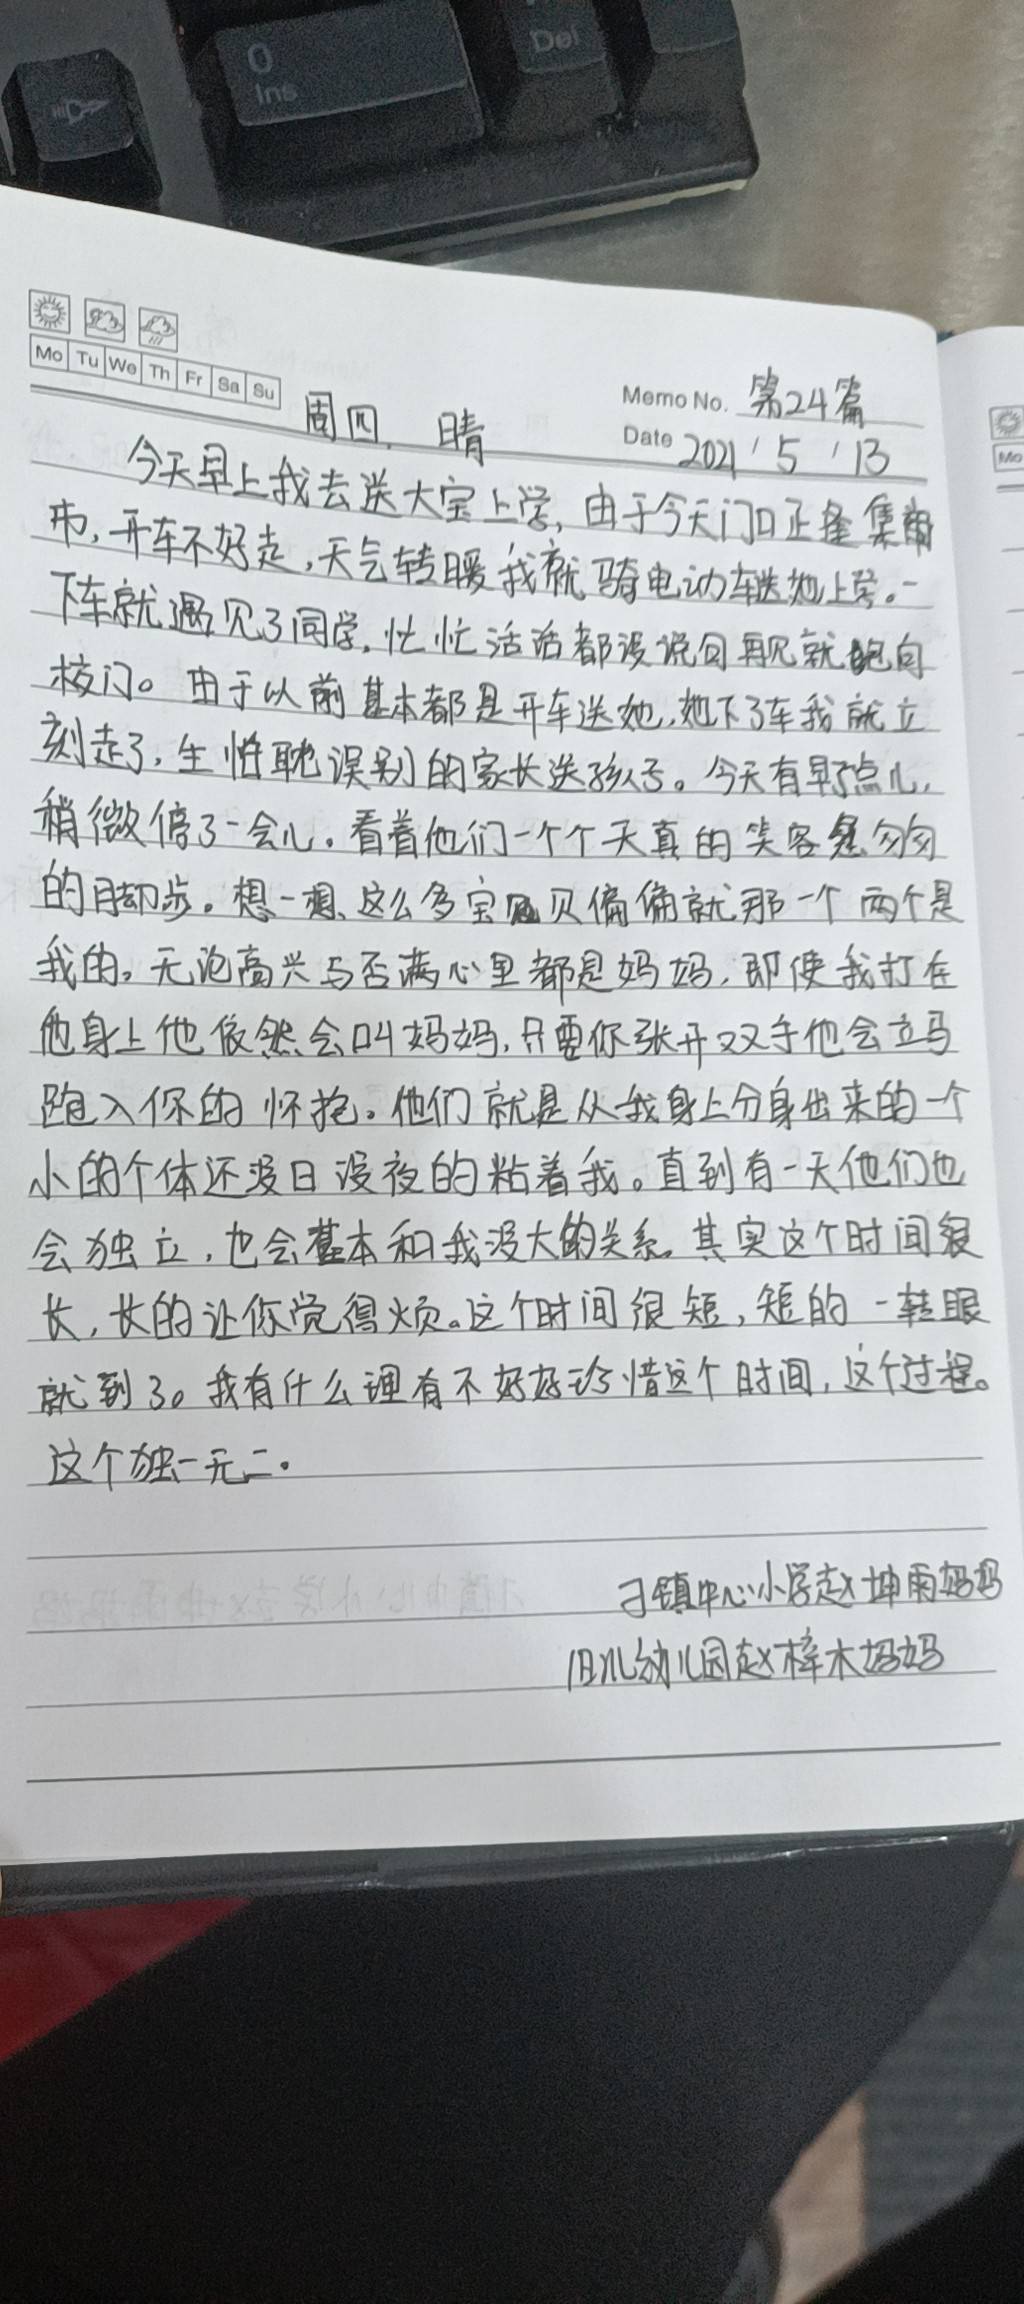 0
Ins
Del
Mo Tu We Th Fr Sa Su
Memo No. 第24篇
周四. 晴
Date 2021 / 5 / 13
今天早上我去送大宝上学,由于今天门口正逢集
市,开车不好走,天气转暖我就骑电动车送她上学。一
下车就遇见了同学,忙忙活活都没说句再见就跑向
校门。由于以前基本都是开车送她,她下了车我就立
刻走了,生怕耽误别的家长送孩子。今天有早了点儿,
稍微停了一会儿。看着他们一个个天真的笑容匆匆
的脚步。想一想、这么多宝贝偏偏就那一个两个是
我的。无论高兴与否满心里都是妈妈,即使我打在
他身上他依然会叫妈妈,只要你张开双手他会立马
跑入你的怀抱。他们就是从我身上分身出来的一个
小的个体还没日没夜的粘着我。直到有一天他们也
会独立,也会基本和我没大的关系。其实这个时间很
长,长的让你觉得烦。这个时间很短,短的一转眼
就到了。我有什么理有不好好珍惜这个时间,这个过程。
这个独一无二。
刁镇中心小学赵坤雨妈妈
旧幼儿园赵梓木妈妈
Mo